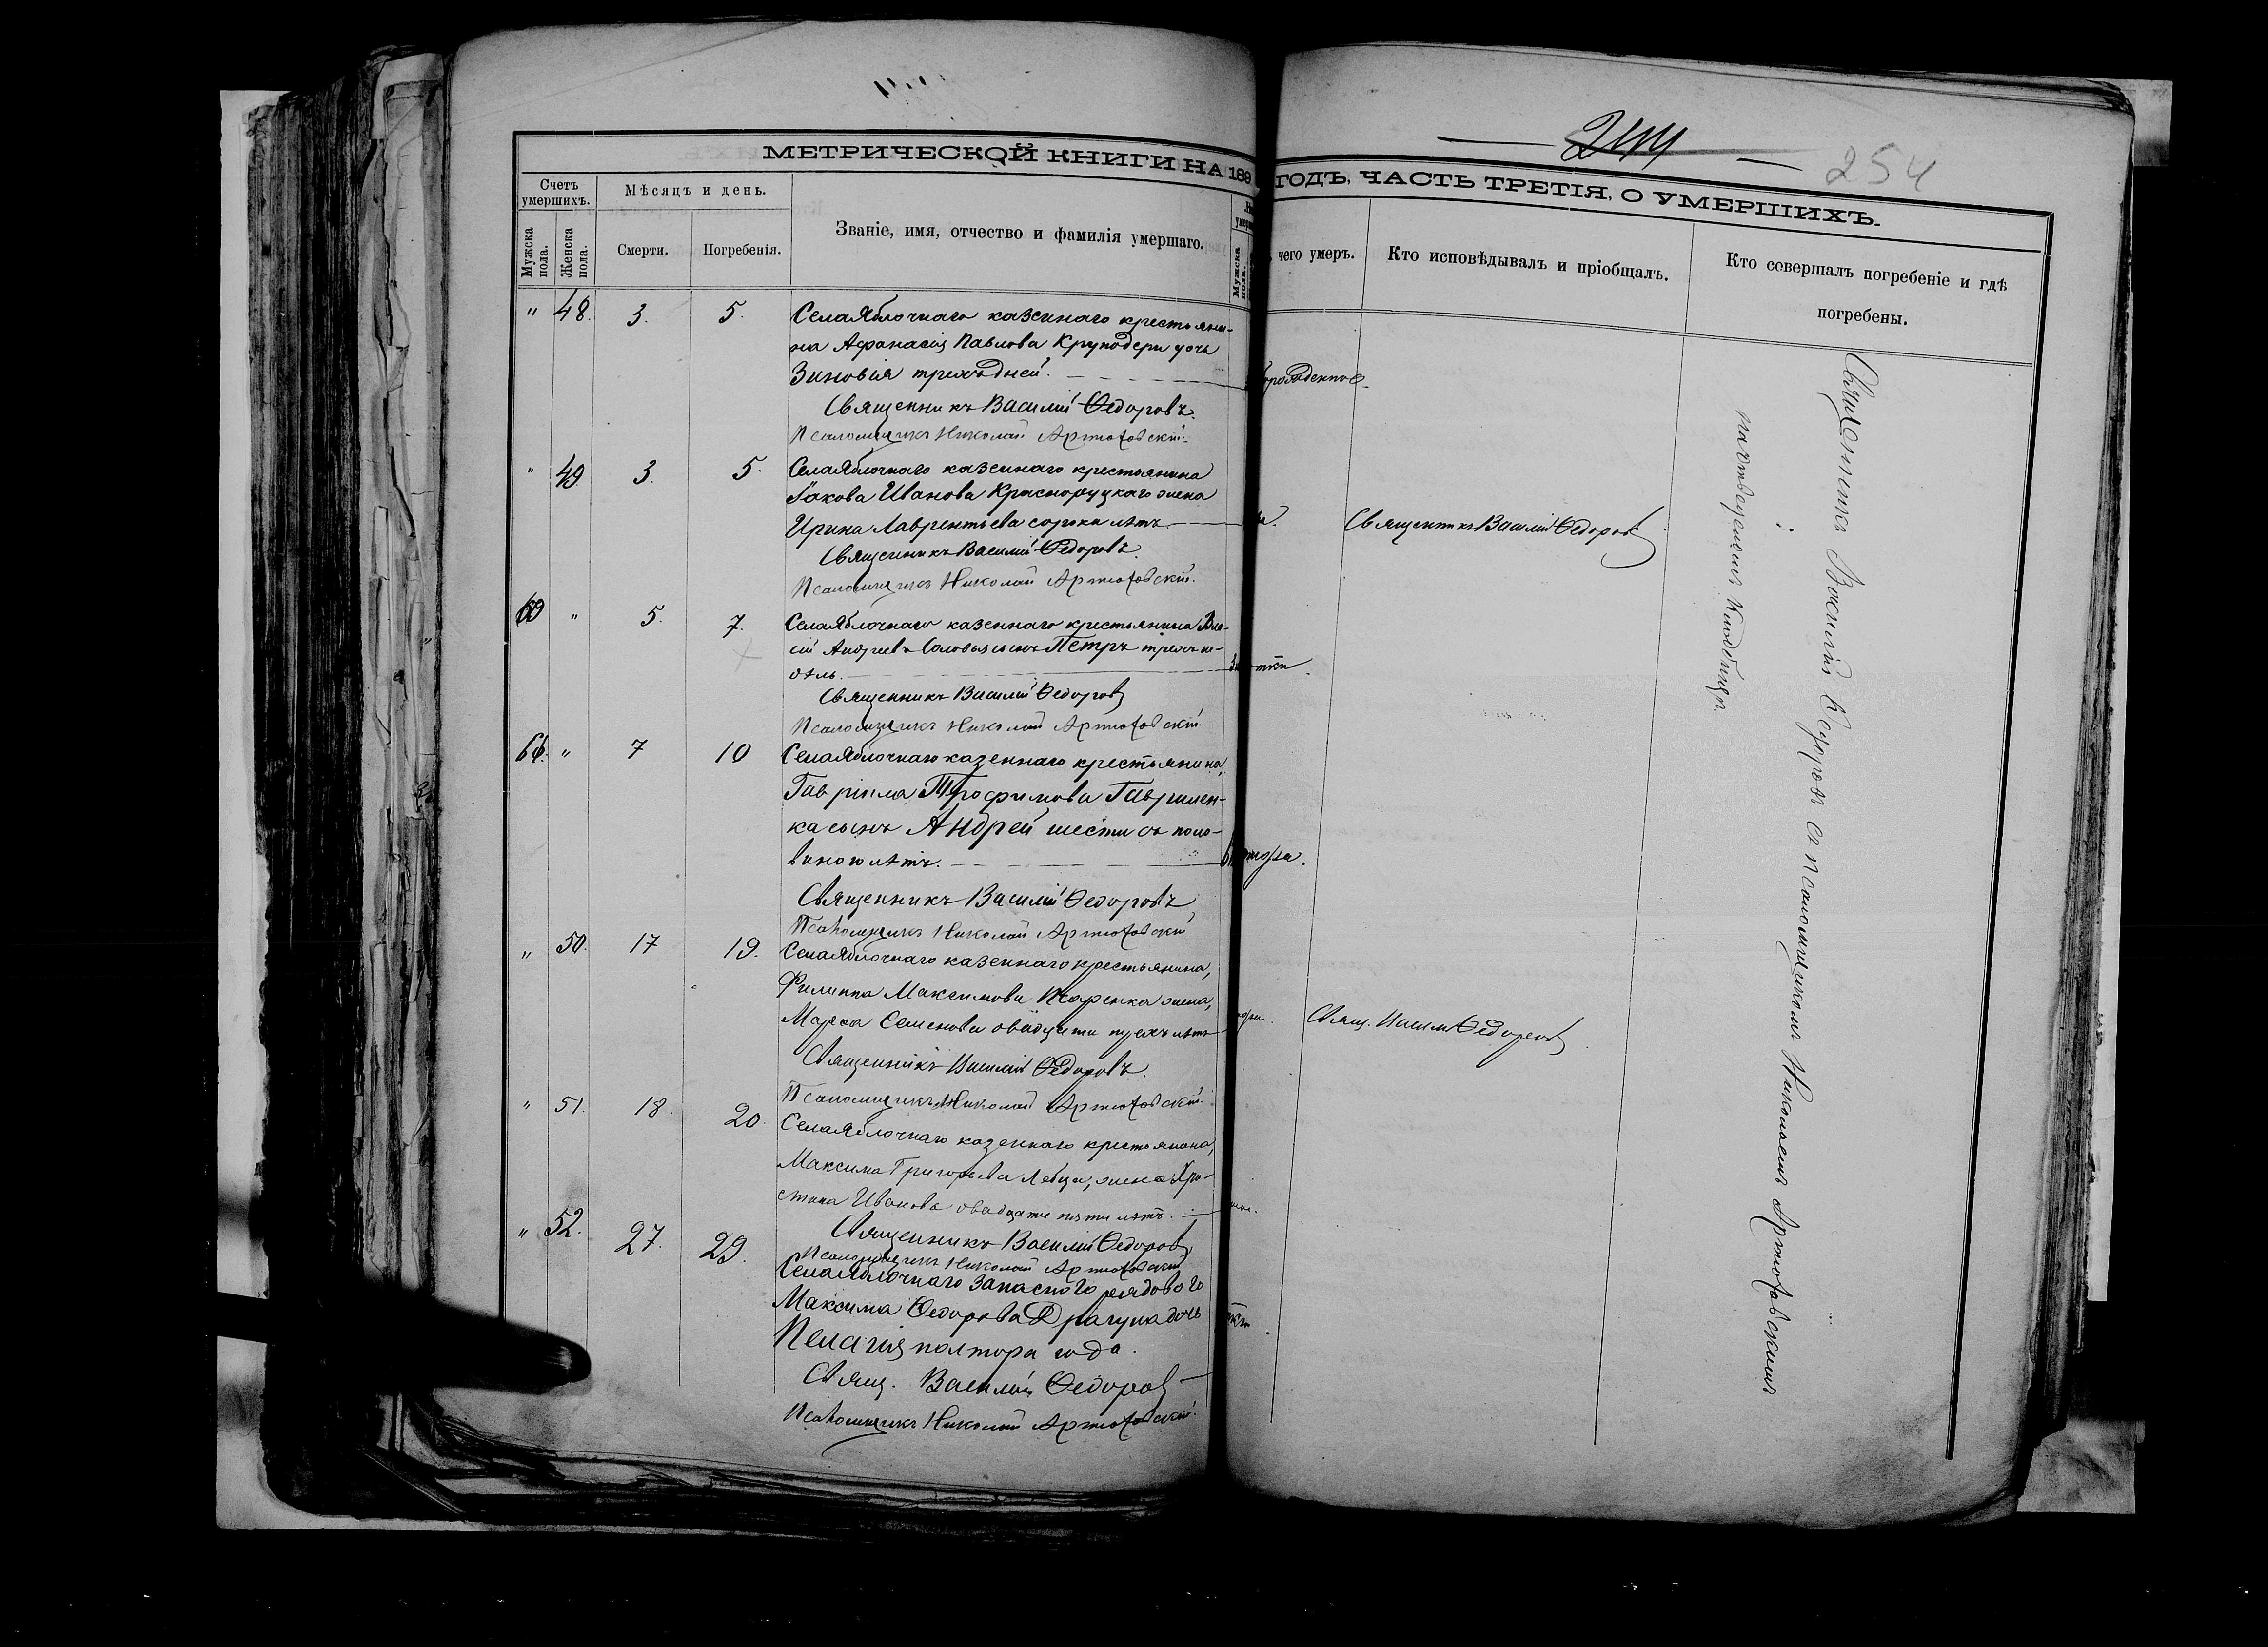 244
254
МЕТРИЧЕСКОЙ КНИГИ НА 189
ГОДЪ, ЧАСТЬ ТРЕТІЯ, О УМЕРШИХЪ.
Счетъ умершихъ.
Мужска пола.
Женска пола.
Мѣсяцъ и день.
Смерти.
Погребенія.
Званіе, имя, отчество и фамилія умершаго.
Мужска пола.
чего умеръ.
Кто исповѣдывалъ и пріобщалъ.
Кто совершалъ погребеніе и гдѣ
погребены.
" 48. 3. 5. Села Яблочнаго казеннаго крестьяни-
на Афанасія Павлова Круподери дочь
Зиновія трехъ дней.
Священникъ Василій Ѳедоровъ.
Псаломщикъ Николай Артюховскій.
" 49. 3. 5. Села Яблочнаго казеннаго крестьянина
Іакова Иванова Красноруцкаго жена
Ирина Лаврентьева сорока лѣтъ.
Священникъ Василій Ѳедоровъ
Священникъ Василій Ѳедоровъ.
Псаломщикъ Николай Артюховскій.
" 5. 7. Села Яблочнаго казеннаго крестьянина Вла-
сій Андреевъ сынъ Петръ трехъ не-
дѣль.
Священникъ Василій Ѳедоровъ
Псаломщикъ Николай Артюховскій.
61. " 7 10 Села Яблочнаго казеннаго крестьянина,
Гавріила Трофимова Гаврилен-
ка сынъ Андрей шести съ поло-
виною лѣтъ.
Священникъ Василій Ѳедоровъ
Псаломщикъ Николай Артюховскій
" 50. 17 19. Села Яблочнаго казеннаго крестьянина,
Филиппа Максимова Псаренка жена,
Марѳа Семенова двадцати трехъ лѣтъ
Свящ. Василій Ѳедоровъ
Священникъ Василій Ѳедоровъ.
Псаломщикъ Николай Артюховскій.
" 51. 18. 20. Села Яблочнаго казеннаго крестьянина,
Максима Григорьева жена Хри-
стина Иванова двадцати пяти лѣтъ.
Священникъ Василій Ѳедоровъ
Псаломщикъ Николай Артюховскій
" 52. 27. 29. Села Яблочнаго запаснаго рядового
Максима Ѳедорова Драгуна дочь
Пелагія полтора года.
Свящ. Василій Ѳедоровъ
Псаломщикъ Николай Артюховскій.
Священникъ Василій Ѳедоровъ съ псаломщикомъ Николаемъ Артюховскимъ
кладбищѣ